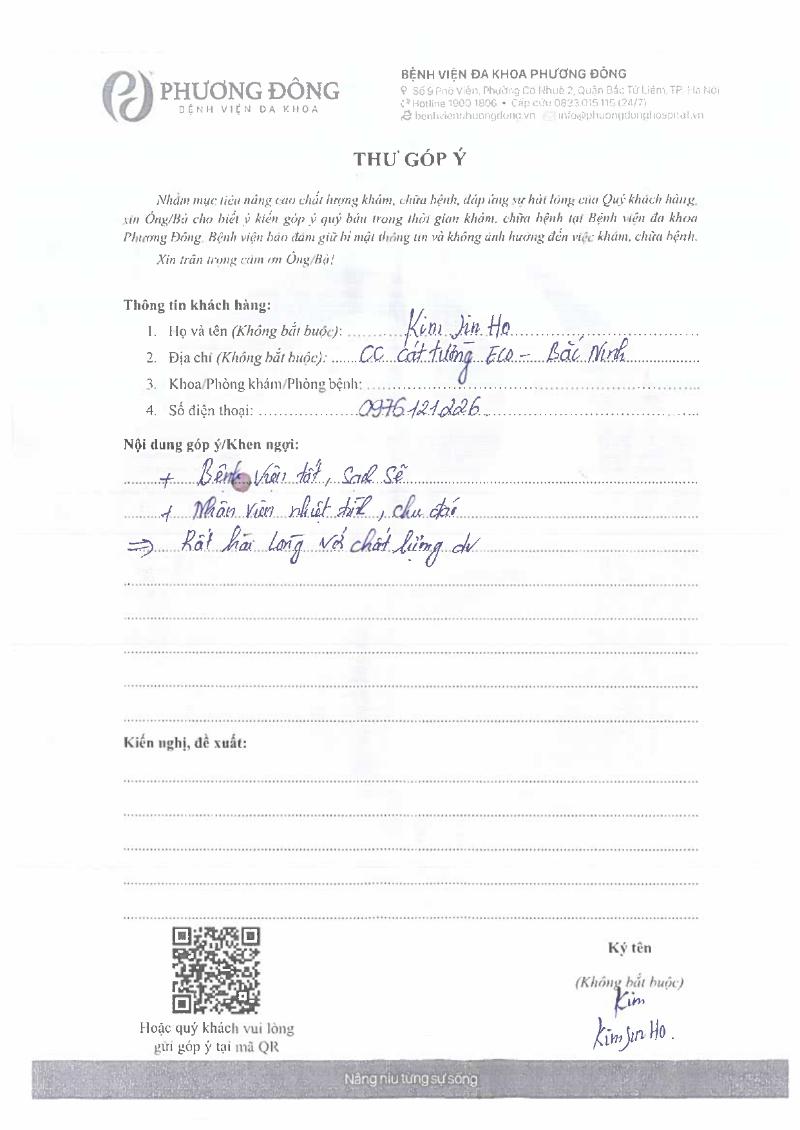 PHƯƠNG ĐÔNG
BỆNH VIỆN ĐA KHOA
BỆNH VIỆN ĐA KHOA PHƯƠNG ĐÔNG
Số 9 Phố Viên, Phường Cổ Nhuế 2, Quận Bắc Từ Liêm, TP. Hà Nội
Hotline 1900 1806 • Cấp cứu 0833 015 115 (24/7)
benhvienphuongdong.vn info@phuongdonghospital.vn
THƯ GÓP Ý
Nhằm mục tiêu nâng cao chất lượng khám, chữa bệnh, đáp ứng sự hài lòng của Quý khách hàng,
xin Ông/Bà cho biết ý kiến góp ý quý báu trong thời gian khám, chữa bệnh tại Bệnh viện đa khoa
Phương Đông. Bệnh viện bảo đảm giữ bí mật thông tin và không ảnh hưởng đến việc khám, chữa bệnh.
Xin trân trọng cảm ơn Ông/Bà!
Thông tin khách hàng:
1. Họ và tên (Không bắt buộc): Kim Jin Ho
2. Địa chỉ (Không bắt buộc): CC Cát tường ECO - Bắc Ninh
3. Khoa/Phòng khám/Phòng bệnh:
4. Số điện thoại: 0976121226
Nội dung góp ý/Khen ngợi:
+ Bệnh viện tốt, sạch sẽ
+ Nhân viên nhiệt tình, chu đáo
=> Rất hài lòng với chất lượng dv
Kiến nghị, đề xuất:
Ký tên
(Không bắt buộc)
Kim
Kim Jin Ho.
Hoặc quý khách vui lòng
gửi góp ý tại mã QR
Nâng niu từng sự sống